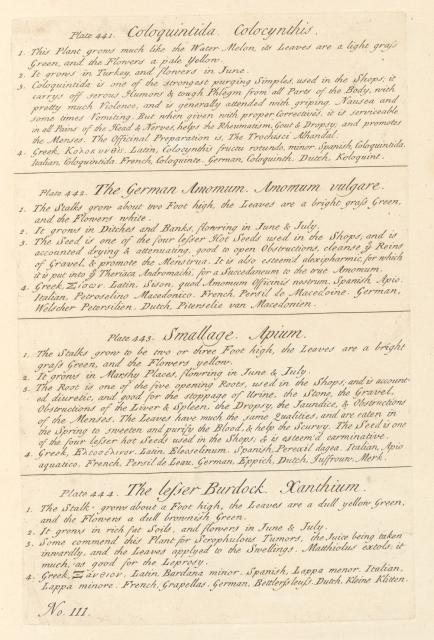 Plate 441. Coloquintida. Colocynthis.
1. This Plant grows much like the Water Melon, its Leaves are a light grass
Green, and the Flowers a pale Yellow.
2. It grows in Turkey, and flowers in June.
3. Coloquintida is one of the strongest purging Simples, used in the Shops; it
carrys off serous Humors & tough Phlegm from all Parts of the Body, with
pretty much Violence, and is generally attended with griping Nausea and
some times Vomiting. But when given with proper Correctives, it is serviceable
in all Pains of the Head & Nerves, helps the Rheumatism, Gout & Dropsy, and promotes
the Menses. The Officinal Preparation is, The Trochisci Alhandal.
4. Greek, Κολοκυνθὶς. Latin, Colocynthis fructu rotundo, minor. Spanish, Coloquintida.
Italian, Coloquintida. French, Coloquinte. German, Coloquinth. Dutch, Koloquint.
Plate 442. The German Amomum. Amomum vulgare.
1. The Stalks grow about two Foot high, the Leaves are a bright grass Green,
and the Flowers white.
2. It grows in Ditches and Banks, flowring in June & July.
3. The Seed is one of the four lesser Hot Seeds used in the Shops, and is
accounted drying & attenuating, good to open Obstructions, cleanse ye Reins
of Gravel, & promote the Menstrua. It is also esteemd alexipharmic, for which
it is put into ye Theriaca Andromachi, for a Succedaneum to the true Amomum.
4. Greek, Σίσων. Latin, Sison, quod Amomum Officinis nostrum. Spanish, Apio.
Italian, Petroselino Macedonico. French, Persil de Macedoine. German,
Welscher Petersilien. Dutch, Piterselie van Macedonien.
Plate 443. Smallage. Apium.
1. The Stalks grow to be two or three Foot high, the Leaves are a bright
grass Green, and the Flowers yellow.
2. It grows in Marshy Places, flowring in June & July.
3. The Root is one of the five opening Roots, used in the Shops; and is account-
ed diuretic, and good for the stoppage of Urine, the Stone, the Gravel,
Obstructions of the Liver & Spleen, the Dropsy, the Jaundice, & Obstructions
of the Menses. The Leaves have much the same Qualities, and are eaten in
the Spring to sweeten and purify the Blood, & help the Scurvy. The Seed is one
of the four lesser hot Seeds used in the Shops, & is esteem'd carminative.
4. Greek, Latin, Eleoselinum. Spanish, Perexil dagoa. Italian, Apio
aquatico. French, Persil de Leau. German, Eppich. Dutch, Juffrouw. Merk.
Plate 444. The lesser Burdock. Xanthium.
1. The Stalk grows about a Foot high, the Leaves are a dull yellow Green,
and the Flowers a dull brownish Green.
2. It grows in rich fat Soils, and flowers in June & July.
3. Some commend this Plant for Scrophulous Tumors, the Juice being taken
inwardly, and the Leaves applyed to the Swellings. Matthiolus extols it
much, as good for the Leprosy.
4. Greek, Ξάνθιον. Latin, Bardana minor. Spanish, Lappa menor. Italian,
Lappa minore. French, Grapellas. German, Bettlerssleuss. Dutch, Kleine Klitten.
No. III.